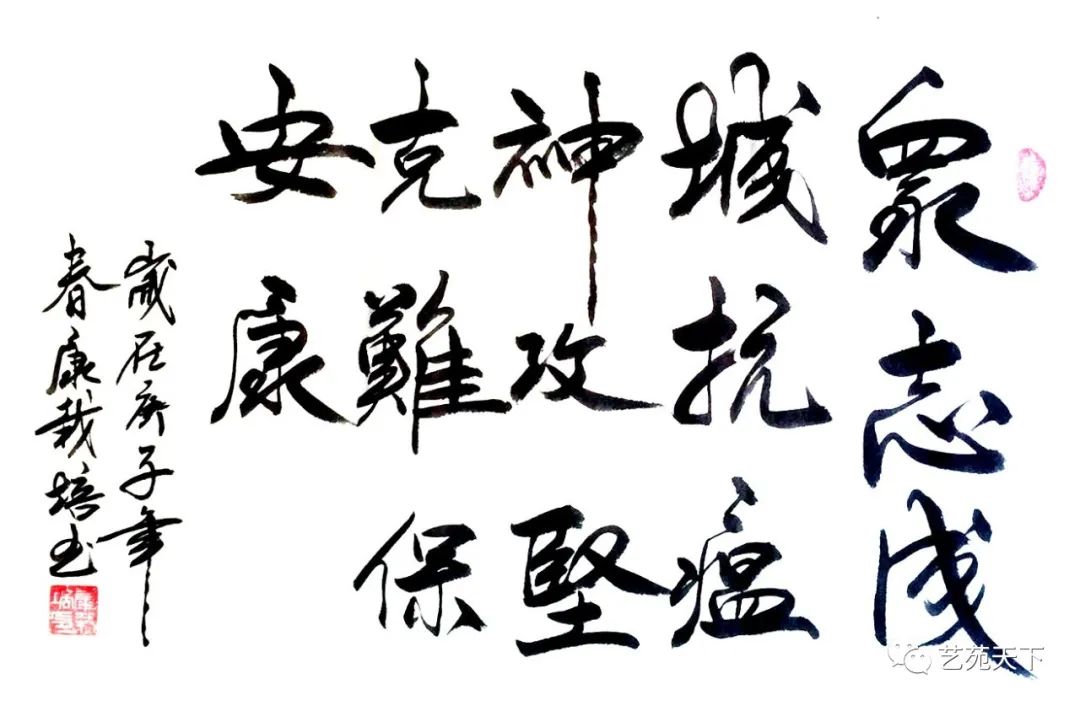 眾志成
城抗瘟
神攻堅
克難保
安康
歲在庚子年
春康栽培书
艺苑天下